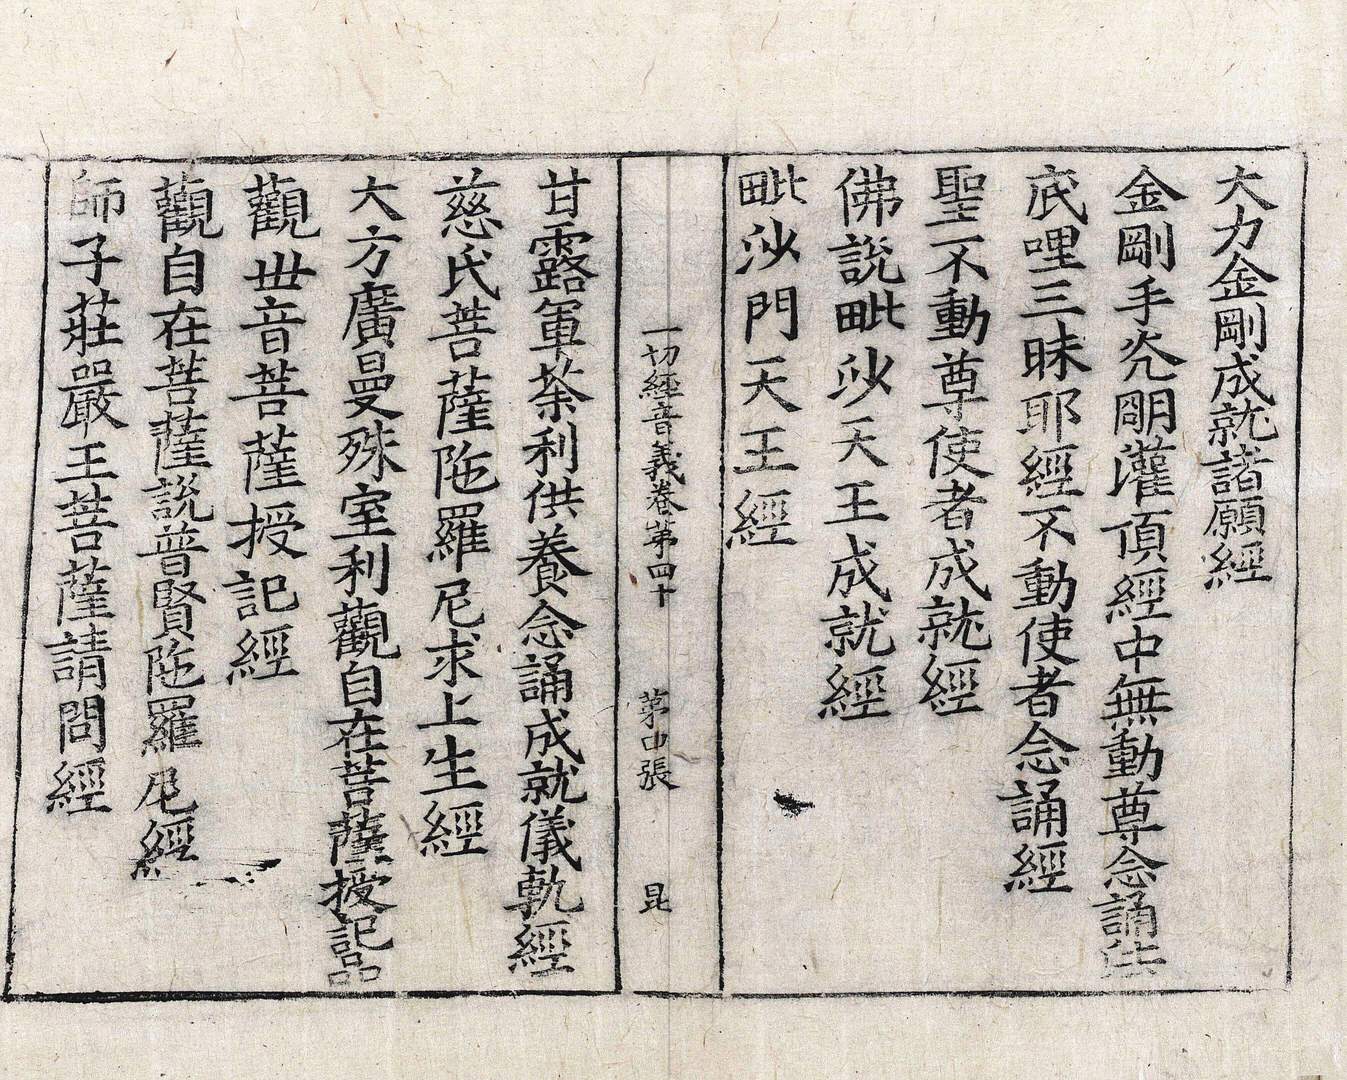 大力金剛成就諸願經
金剛手光明灌頂經中無動尊念誦法
底哩三昧耶經不動使者念誦經
聖不動尊使者成就經
佛說毗沙天王成就經
毗沙門天王經
一切經音義卷苐四十 苐 張 昆
甘露軍荼利供養念誦成就儀軌經
慈氏菩薩陁羅尼求上生經
大方廣曼殊室利觀自在菩薩授記品
觀丗音菩薩授記經
觀自在菩薩說普賢陁羅尼經
師子莊嚴王菩薩請問經